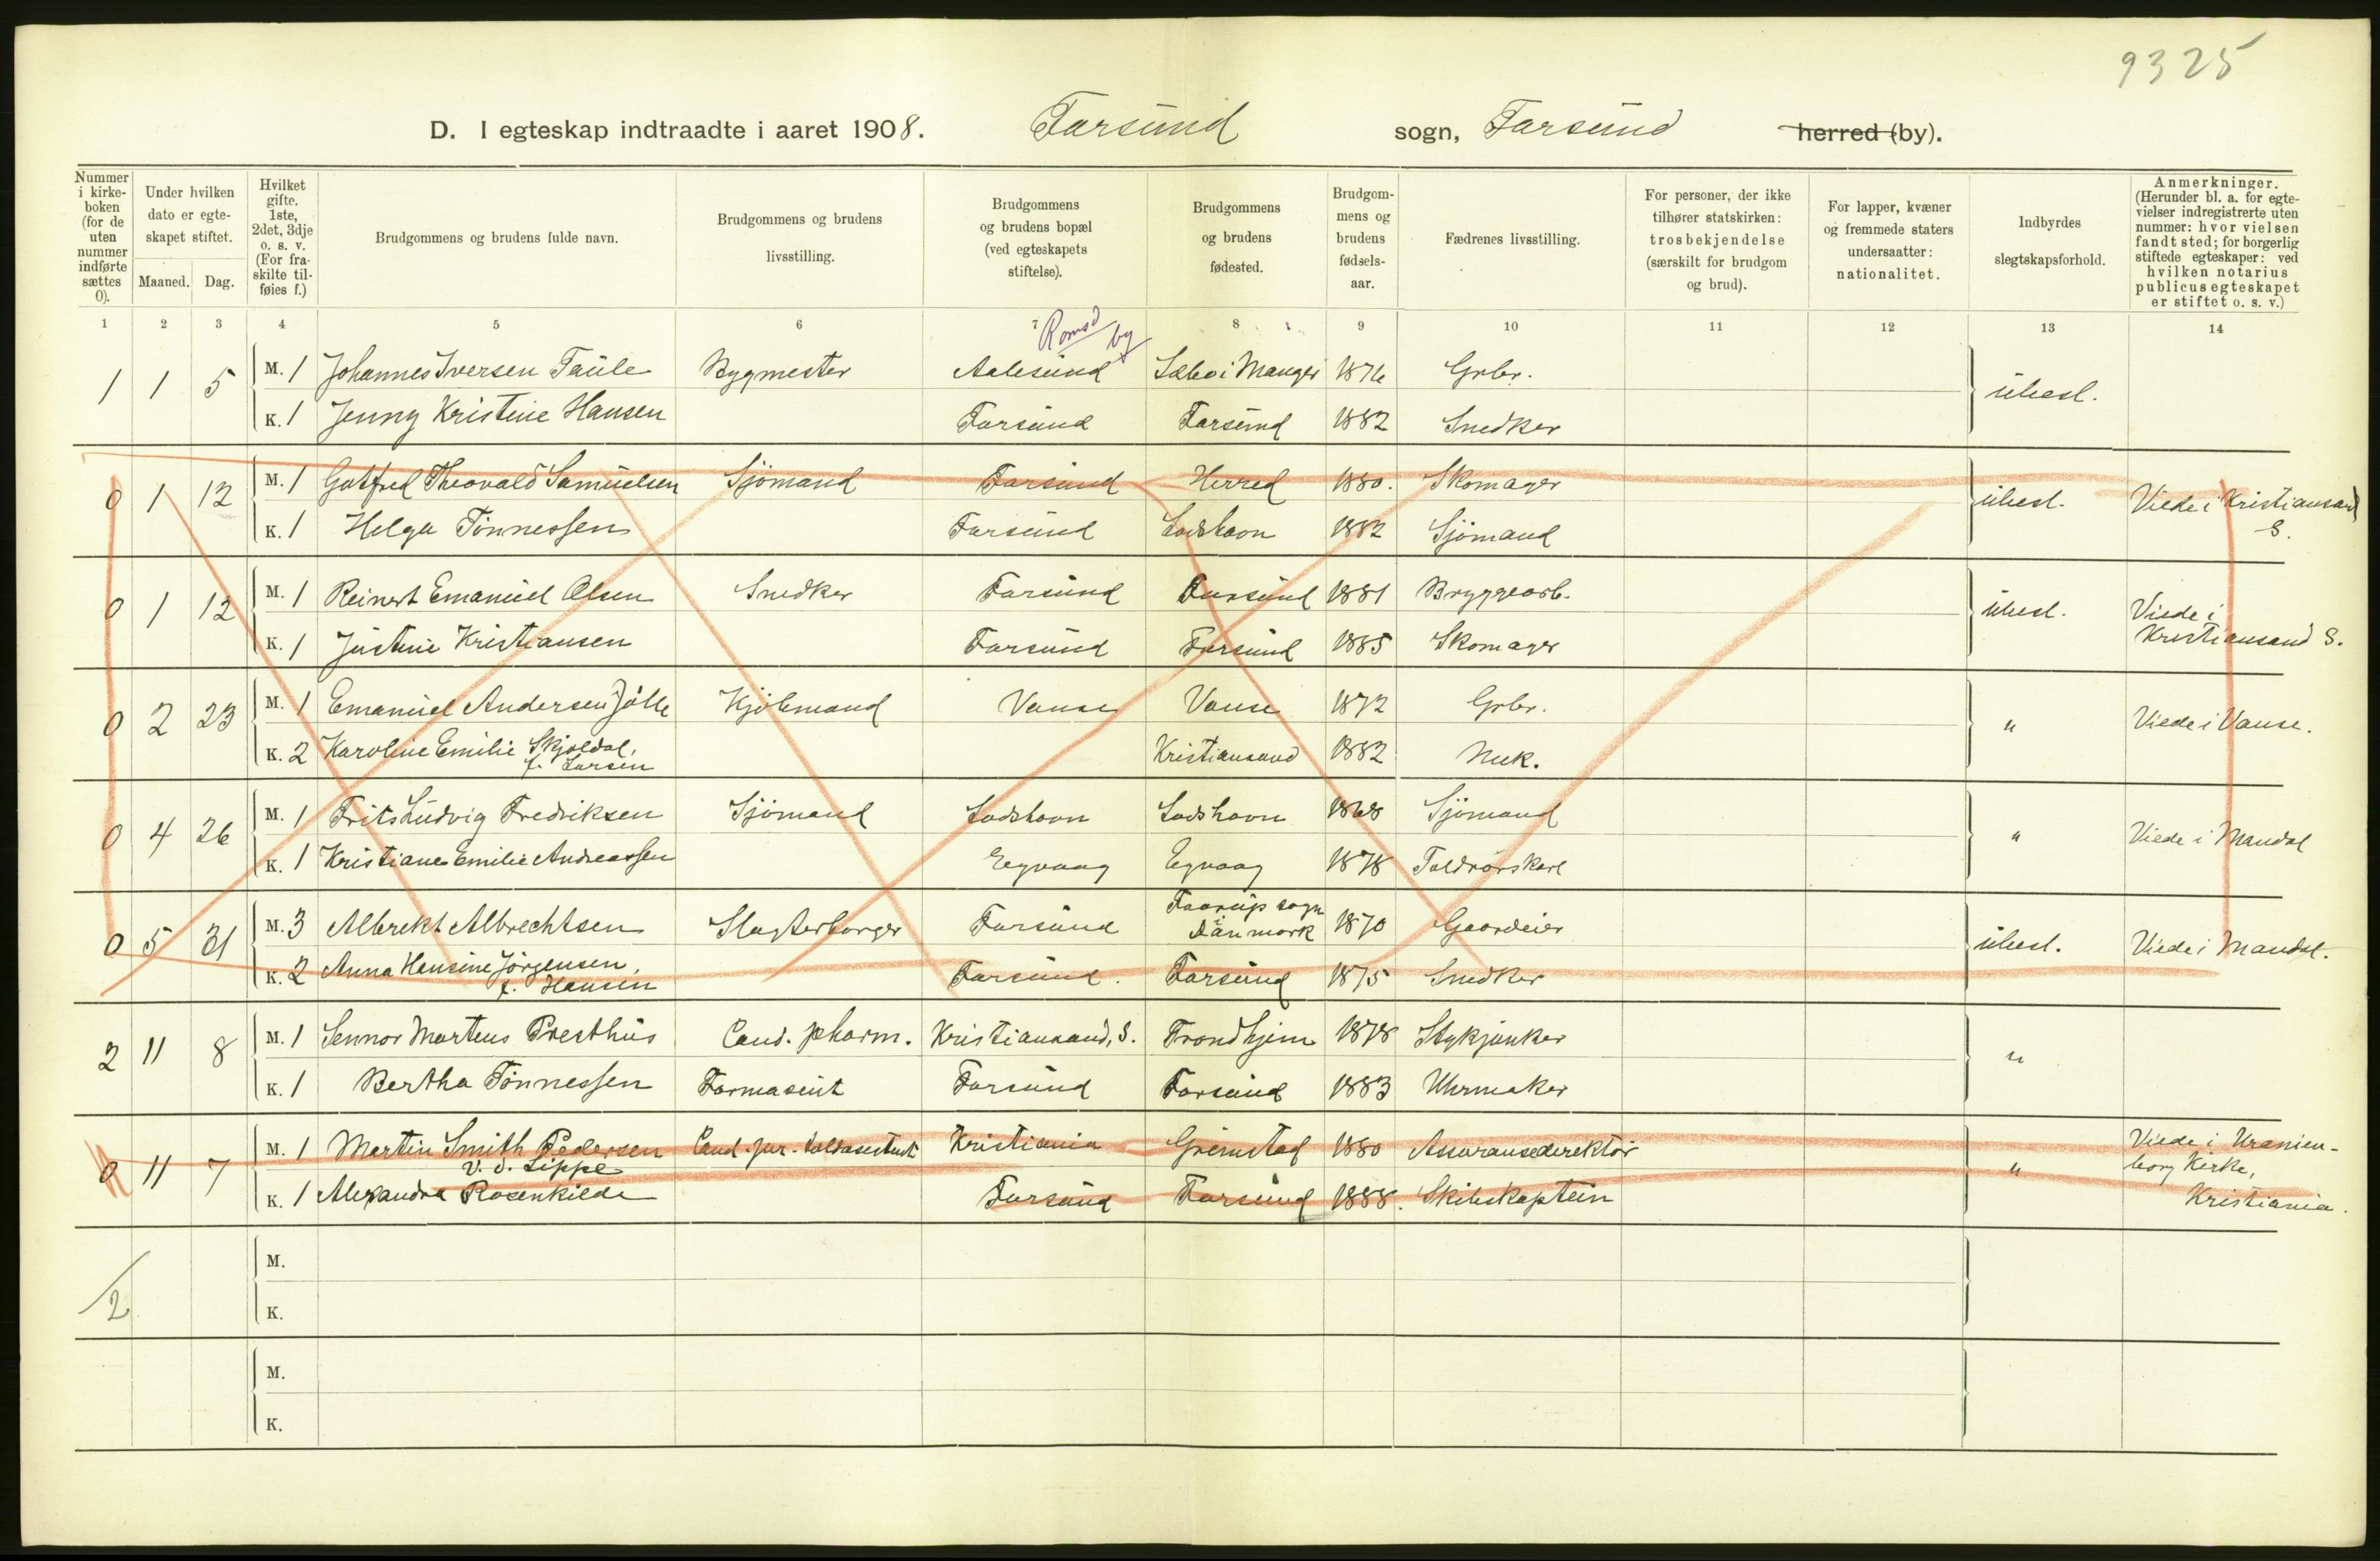 9325
D. I egteskap indtraadte i aaret 1908. Farsund sogn, Farsund herred (by).
Nummer i kirke-boken (for de uten nummer indførte sættes 0).
Under hvilken dato er egte-skapet stiftet.
Maaned. Dag.
Hvilket gifte. 1ste, 2det, 3dje o. s. v. (For fra-skilte til-føies f.)
Brudgommens og brudens fulde navn.
Brudgommens og brudens livsstilling.
Brudgommens og brudens bopæl (ved egteskapets stiftelse).
Brudgommens og brudens fødested.
Brudgom-mens og brudens fødsels-aar.
Fædrenes livsstilling.
For personer, der ikke tilhører statskirken: trosbekjendelse (særskilt for brudgom og brud).
For lapper, kvæner og fremmede staters undersaatter: nationalitet.
Indbyrdes slegtskapsforhold.
Anmerkninger. (Herunder bl. a. for egte-vielser indregistrerte uten nummer: hvor vielsen fandt sted; for borgerlig stiftede egteskaper: ved hvilken notarius publicus egteskapet er stiftet o. s. v.)
1 2 3 4 5 6 7 8 9 10 11 12 13 14
Romsd by
1 1 5 M. 1 Johannes Iversen Taule Bygmester Aalesund Sæbø i Manger 1876 Grbr. ubesl.
K. 1 Jenny Kristine Hansen Farsund Farsund 1882 Snedker
0 1 12 M. 1 Gotfred Theovald Samuelsen Sjömand Farsund Herred 1880. Skomager ubesl. Viede i Kristiansand S.
K. 1 Helga Tönnessen Farsund Loshavn 1882 Sjömand
0 1 12 M. 1 Reinert Emanuel Olsen Snedker Farsund Farsund 1881 Bryggearb. ubesl. Viede i Kristiansand S.
K. 1 Justine Kristiansen Farsund Farsund 1885 Skomager
0 2 23 M. 1 Emanuel Andersen Jölle Kjöbmand Vanse Vanse 1872 Grbr. " Viede i Vanse.
K. 2 Karoline Emilie Skjoldal, f. Larsen Kristiansand 1882
0 4 26 M. 1 Frits Ludvig Fredriksen Sjömand Loshavn Loshavn 1868 Sjömand " Viede i Mandal
K. 1 Kristiane Emilie Andreassen Eegvaag Egvaag 1878 Toldrorskarl
0 5 31 M. 3 Albrekt Albrechtsen Slagterborger Farsund Faarup sogn i Danmark 1870 Gaardeier ubesl. Viede i Mandal.
K. 2 Anna Hansine Jörgensen, f. Hansen Farsund. Farsund 1875 Snedker
2 11 8 M. 1 Sennor Martens Presthus Cand. pharm. Kristiansand, S. Trondhjem 1878 Stykjunker "
K. 1 Bertha Tönnessen Farmaseut Farsund Farsund 1883 Uhrmaker
0 11 7 M. 1 Martin Smith Pedersen Cand. jur. toldassistent Kristiania Grimstad 1880 Assuransedirektör " Viede i Uranien-borg Kirke, Kristiania.
K. 1 Alexandra v. d. Lippe Rosenkilde Farsund Farsund 1888. Skibskaptein
2 M.
K.
M.
K.